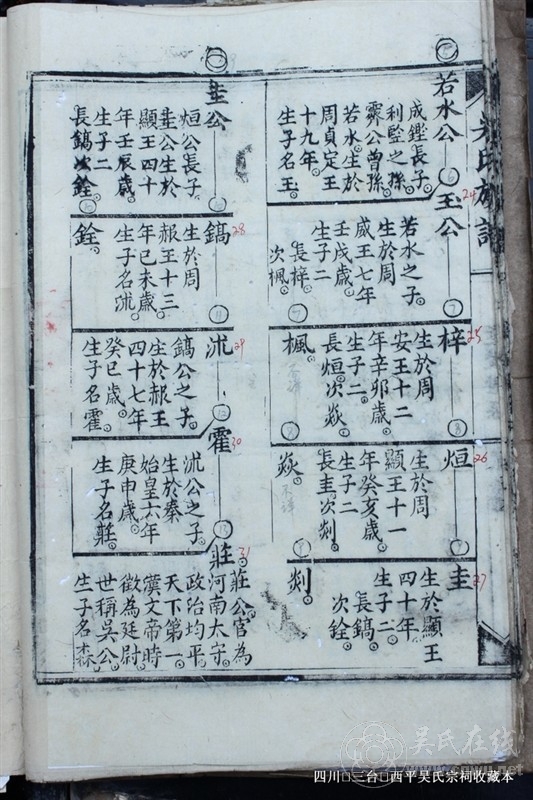 吳氏族譜
若水公
成鑑長子
利監之孫
霽公曾孫
若水生於
周貞定王
十九年
生子名王
24
玉公
若水之子
生於周
威王七年
壬戌歲
生子二
長梓
次楓
25
梓
生於周
安王十二
年辛卯歲
生子二
長烜次焱
楓
26
烜
生於周
顯王十一
年癸亥歲
生子二
長圭次剡
焱
不詳
27
圭
生於顯王
四十年
生子二
長鎬
次銓
剡
圭公
烜公長子
圭公生於
顯王四十
年壬辰歲
生子二
長鎬次銓
28
鎬
生於周
赧王十三
年己未歲
生子名沭
銓
29
沭
鎬公之子
生於赧王
四十七年
癸巳歲
生子名霍
30
霍
沭公之子
生於秦
始皇六年
庚申歲
生子名莊
31
莊
莊公官為
河南太守
政治均平
天下第一
漢文帝時
徵為廷尉
世稱吳公
生子名森
吴氏在线
四川三台西平吴氏宗祠收藏本